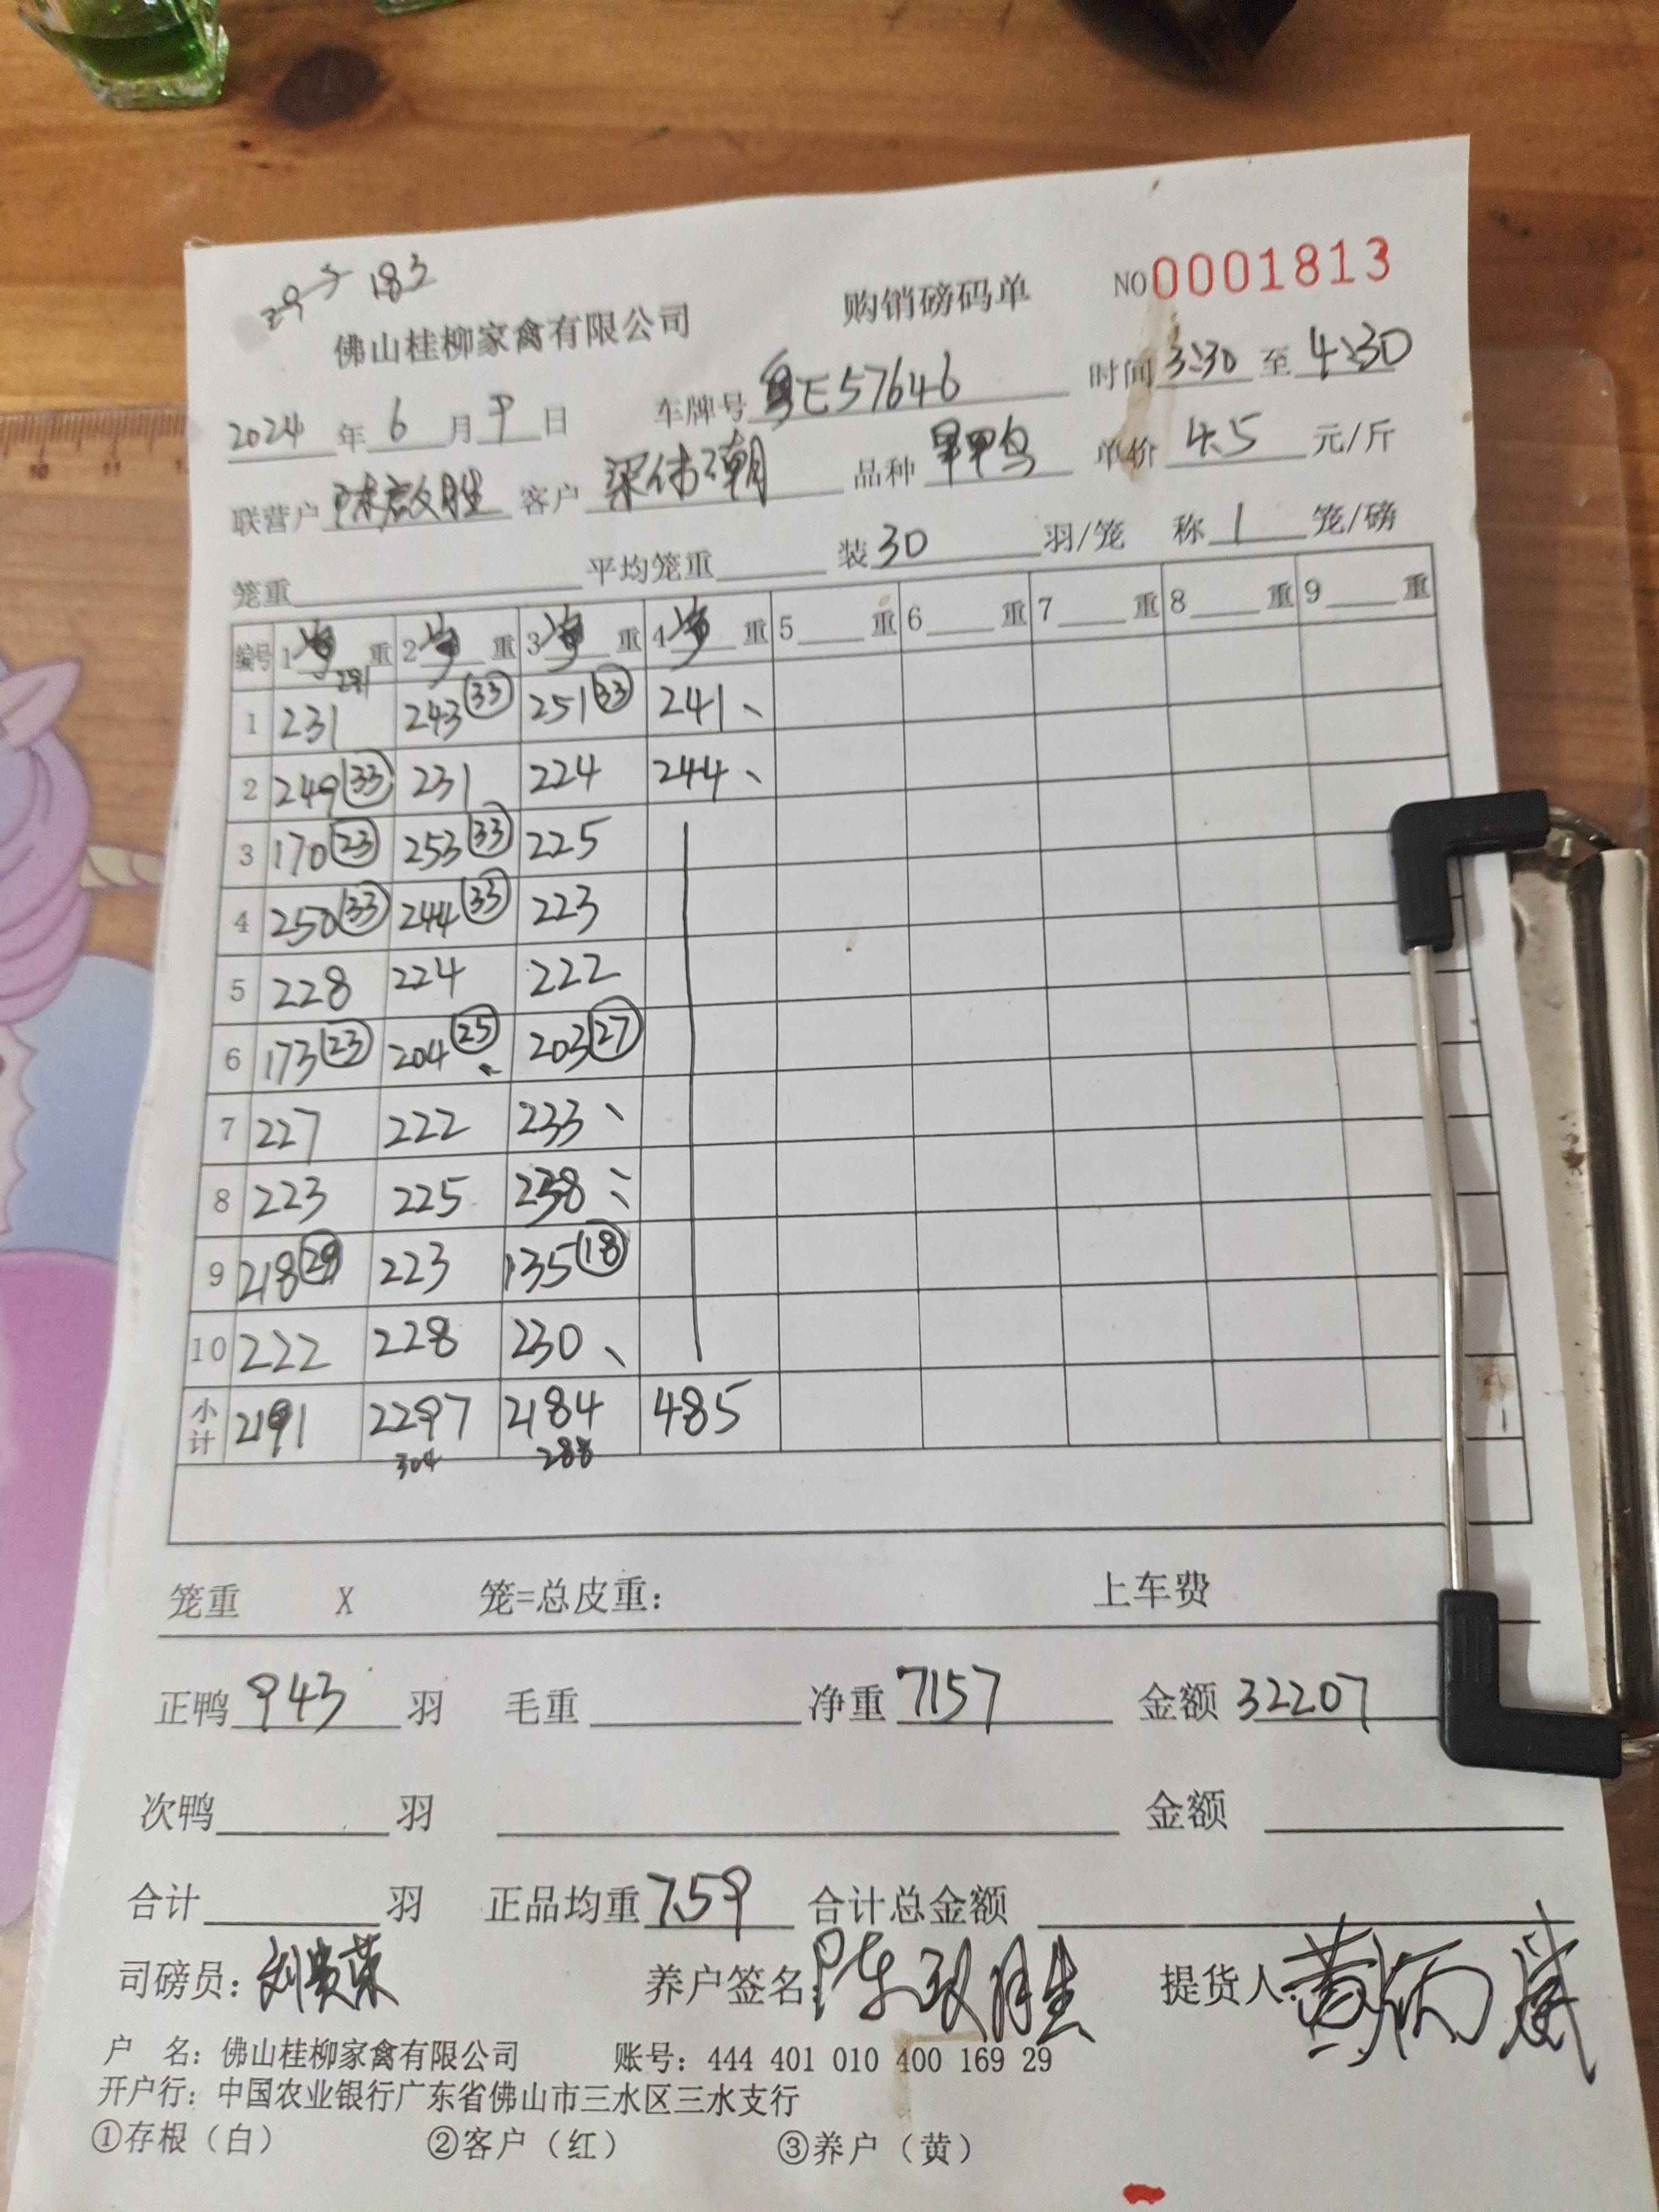 29 183
佛山桂柳家禽有限公司 购销磅码单 NO0001813
2024年6月9日 车牌号粤E57646 时间3:30至4:30
联营户陈啟胜 客户梁伟潮 品种 单价4.5元/斤
笼重 平均笼重 装30羽/笼 称1笼/磅
编号 1 重 2 重 3 重 4 重 5 重 6 重 7 重 8 重 9 重
291
1 231 243 33 251 33 241
2 249 33 231 224 244
3 170 23 253 33 225
4 250 33 244 33 223
5 228 224 222
6 173 23 204 25 203 27
7 227 222 233
8 223 225 238
9 218 29 223 135 18
10 222 228 230
小计 2191 2297 2184 485
304 288
笼重 X 笼=总皮重： 上车费
正鸭943羽 毛重 净重7157 金额32207
次鸭 羽 金额
合计 羽 正品均重7.59 合计总金额
司磅员：刘贵荣 养户签名：陈啟胜 提货人：黄炳
户 名：佛山桂柳家禽有限公司 账号：444 401 010 400 169 29
开户行：中国农业银行广东省佛山市三水区三水支行
①存根（白） ②客户（红） ③养户（黄）